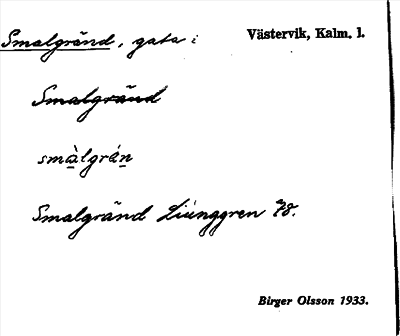 Smalgränd, gata i Västervik, Kalm. l.
Smalgränd
smàlgrán
Smalgränd Liunggren 78.
Birger Olsson 1933.